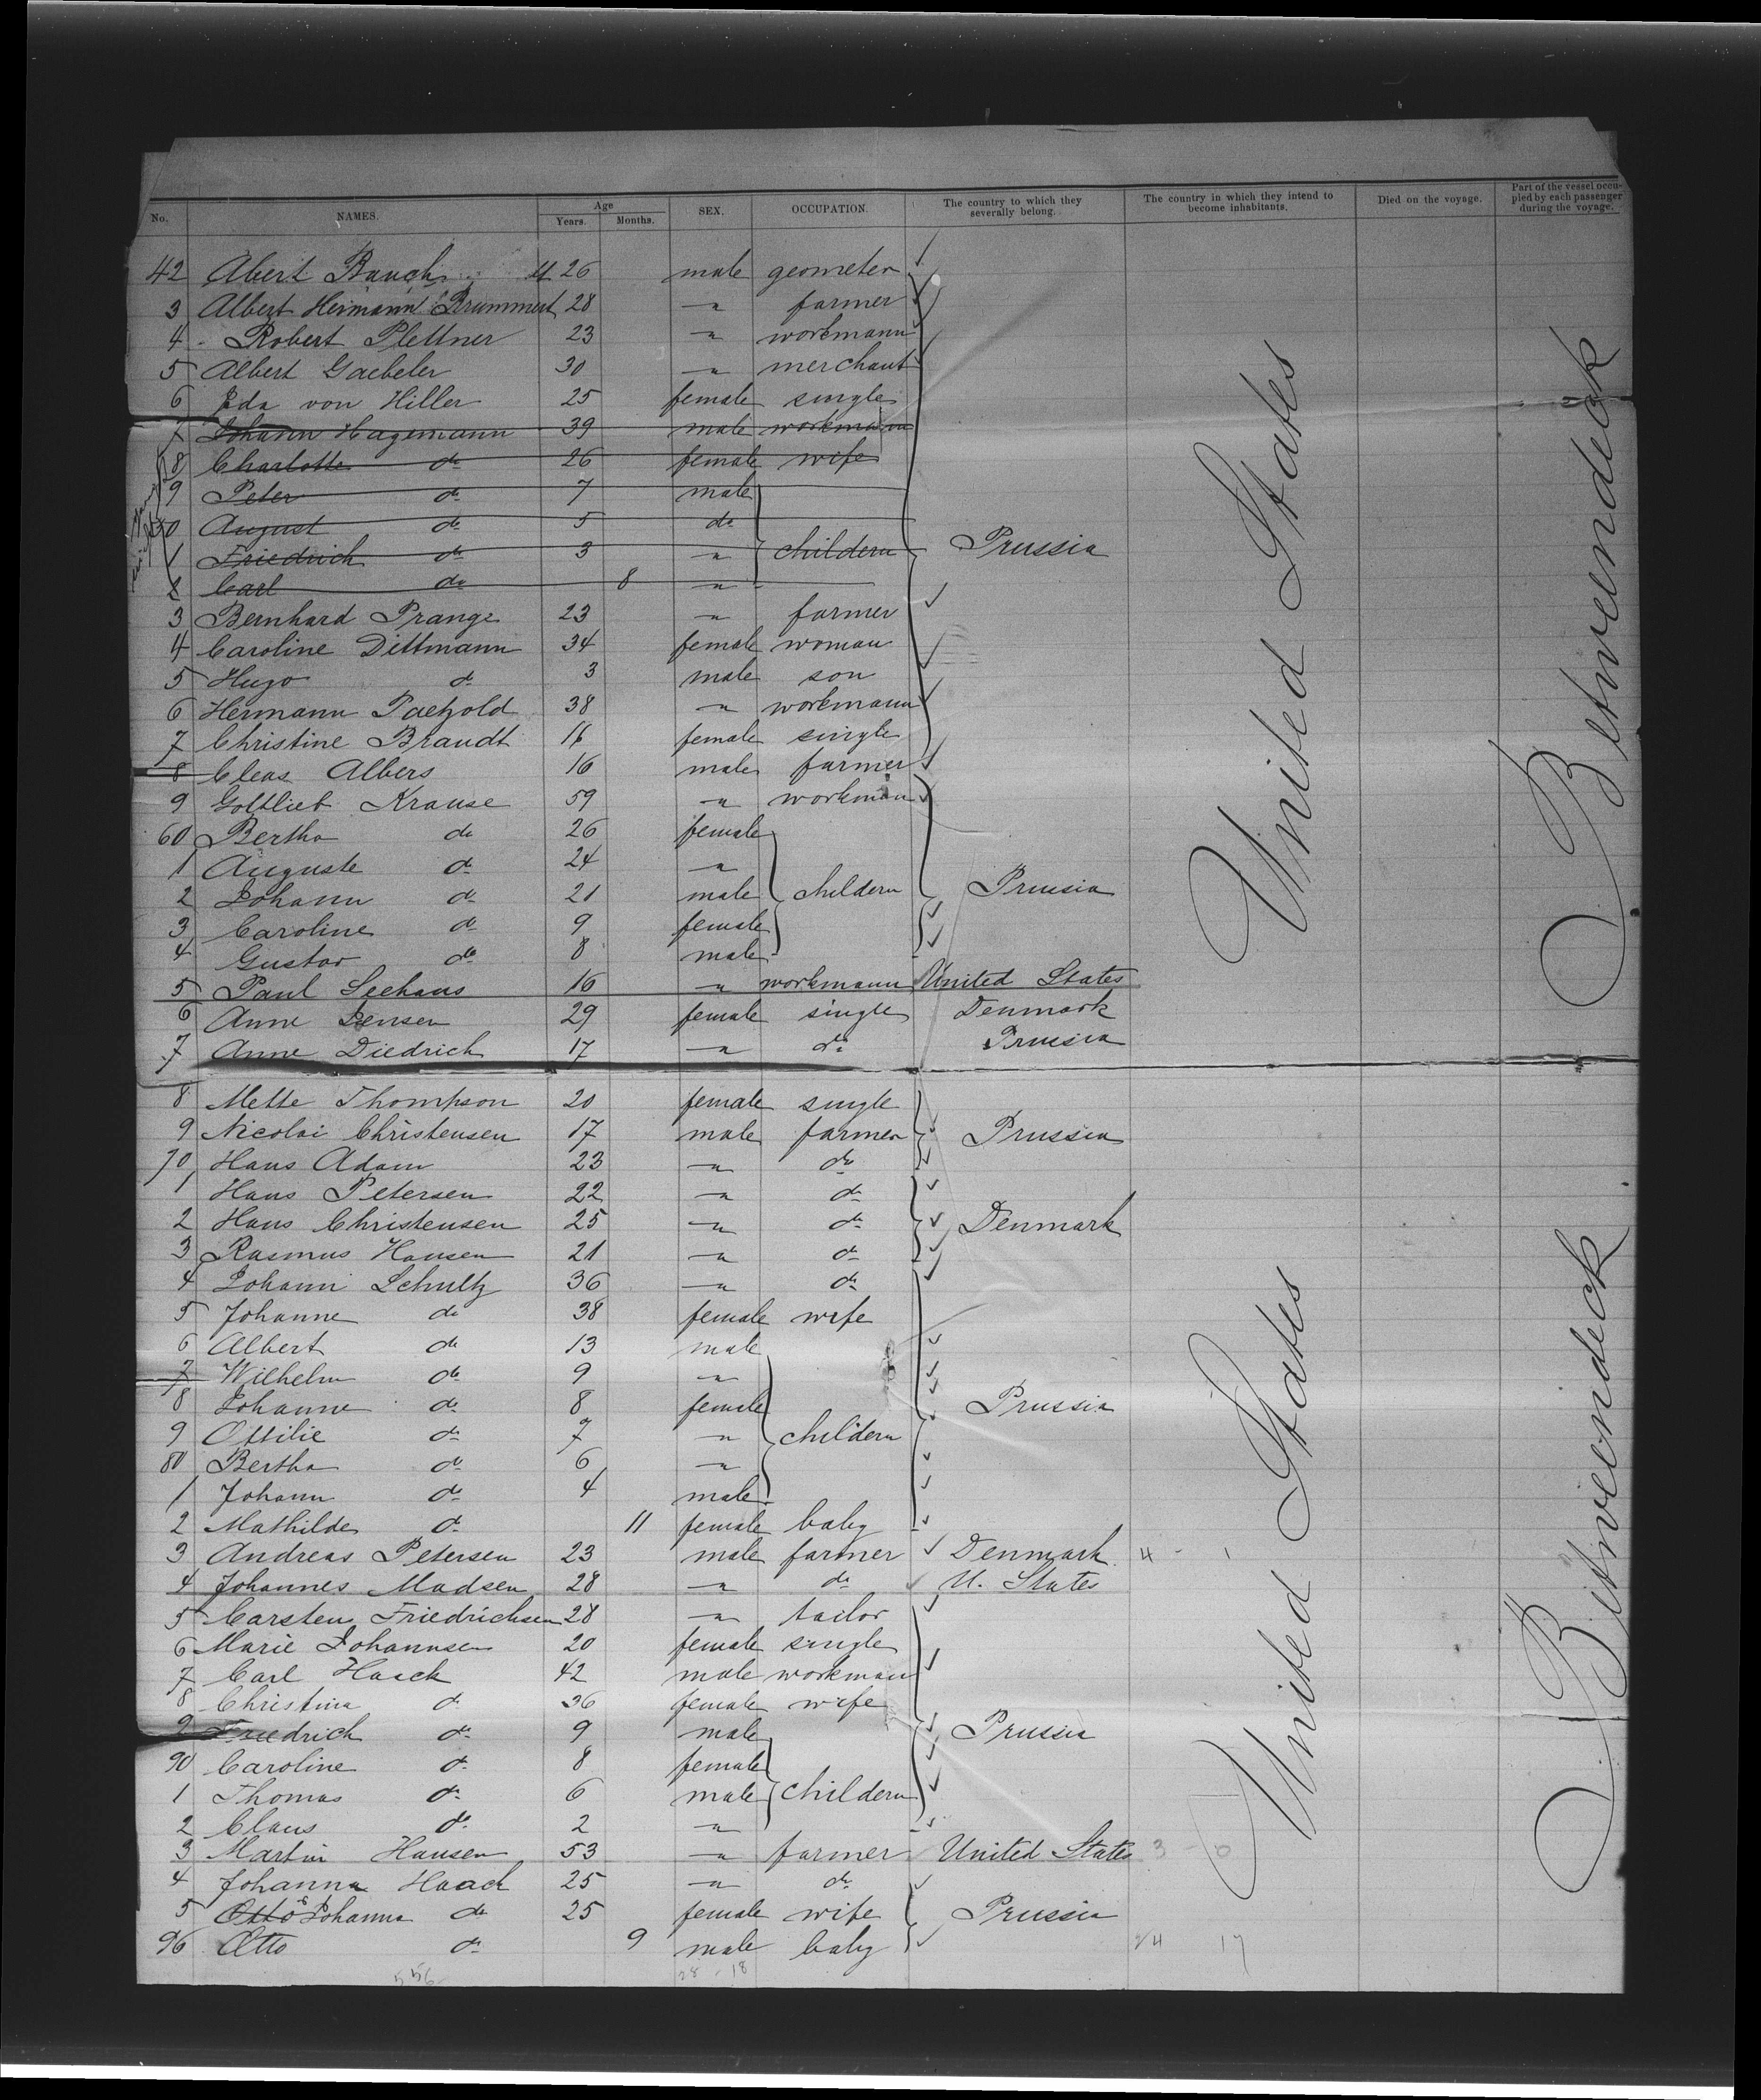 No. NAMES. Age Years. Months. SEX. OCCUPATION. The country to which they severally belong. The country in which they intend to become inhabitants. Died on the voyage. Part of the vessel occupied by each passenger during the voyage.
42 Abert Bauch 26 male geometer
3 Albert Hermann Brummert 28 " farmer
4 Robert Plettner 23 " workmann
5 Albert Gaebeler 30 " merchant
6 Ida von Hiller 25 female single
7 Johann Hagemann 39 male workmann
8 Charlotte do 26 female wife
9 Peter do 7 male
50 August do 5 do
1 Friedrich do 3 " childern Prussia
2 Carl do 8 "
3 Bernhard Prange 23 " farmer
4 Caroline Dittmann 34 female woman
5 Hugo do 3 male son
6 Hermann Paetzold 38 " workmann
7 Christine Brandt 16 female single
8 Cleas Albers 16 male farmer
9 Gottlieb Krause 59 " workman
60 Bertha do 26 female
1 Auguste do 24 "
2 Johann do 21 male childern Prussia
3 Caroline do 9 female
4 Gustav do 8 male
5 Paul Seehaus 16 " workmann United States
6 Anne Jensen 29 female single Denmark
7 Anne Diedrich 17 " do Prussia
United States
Betweendeck
8 Mette Thompson 20 female single
9 Nicolai Christensen 17 male farmer Prussia
70 Hans Adam 23 " do
1 Hans Petersen 22 " do
2 Hans Christensen 25 " do Denmark
3 Rasmus Hansen 21 " do
4 Johann Schultz 36 " do
5 Johanne do 38 female wife
6 Albert do 13 male
7 Wilhelm do 9 "
8 Johanne do 8 female Prussia
9 Ottilie do 7 " childern
80 Bertha do 6 "
1 Johann do 4 male
2 Mathilde do 11 female baby
3 Andreas Petersen 23 male farmer Denmark 4 - 1
4 Johannes Madsen 28 " do U. States
5 Carsten Friedrichsen 28 " tailor
6 Marie Johannsen 20 female single
7 Carl Haack 42 male workman
8 Christina do 36 female wife
9 Friedrich do 9 male Prussia
90 Caroline do 8 female
1 Thomas do 6 male childern
2 Claus do 2 "
3 Martin Hansen 53 " farmer United States 3 - 0
4 Johann Haack 25 " do
5 Otto Johanna do 25 female wife Prussia
96 Otto do 9 male baby 24 17
556 28 - 18
United States
Betweendeck